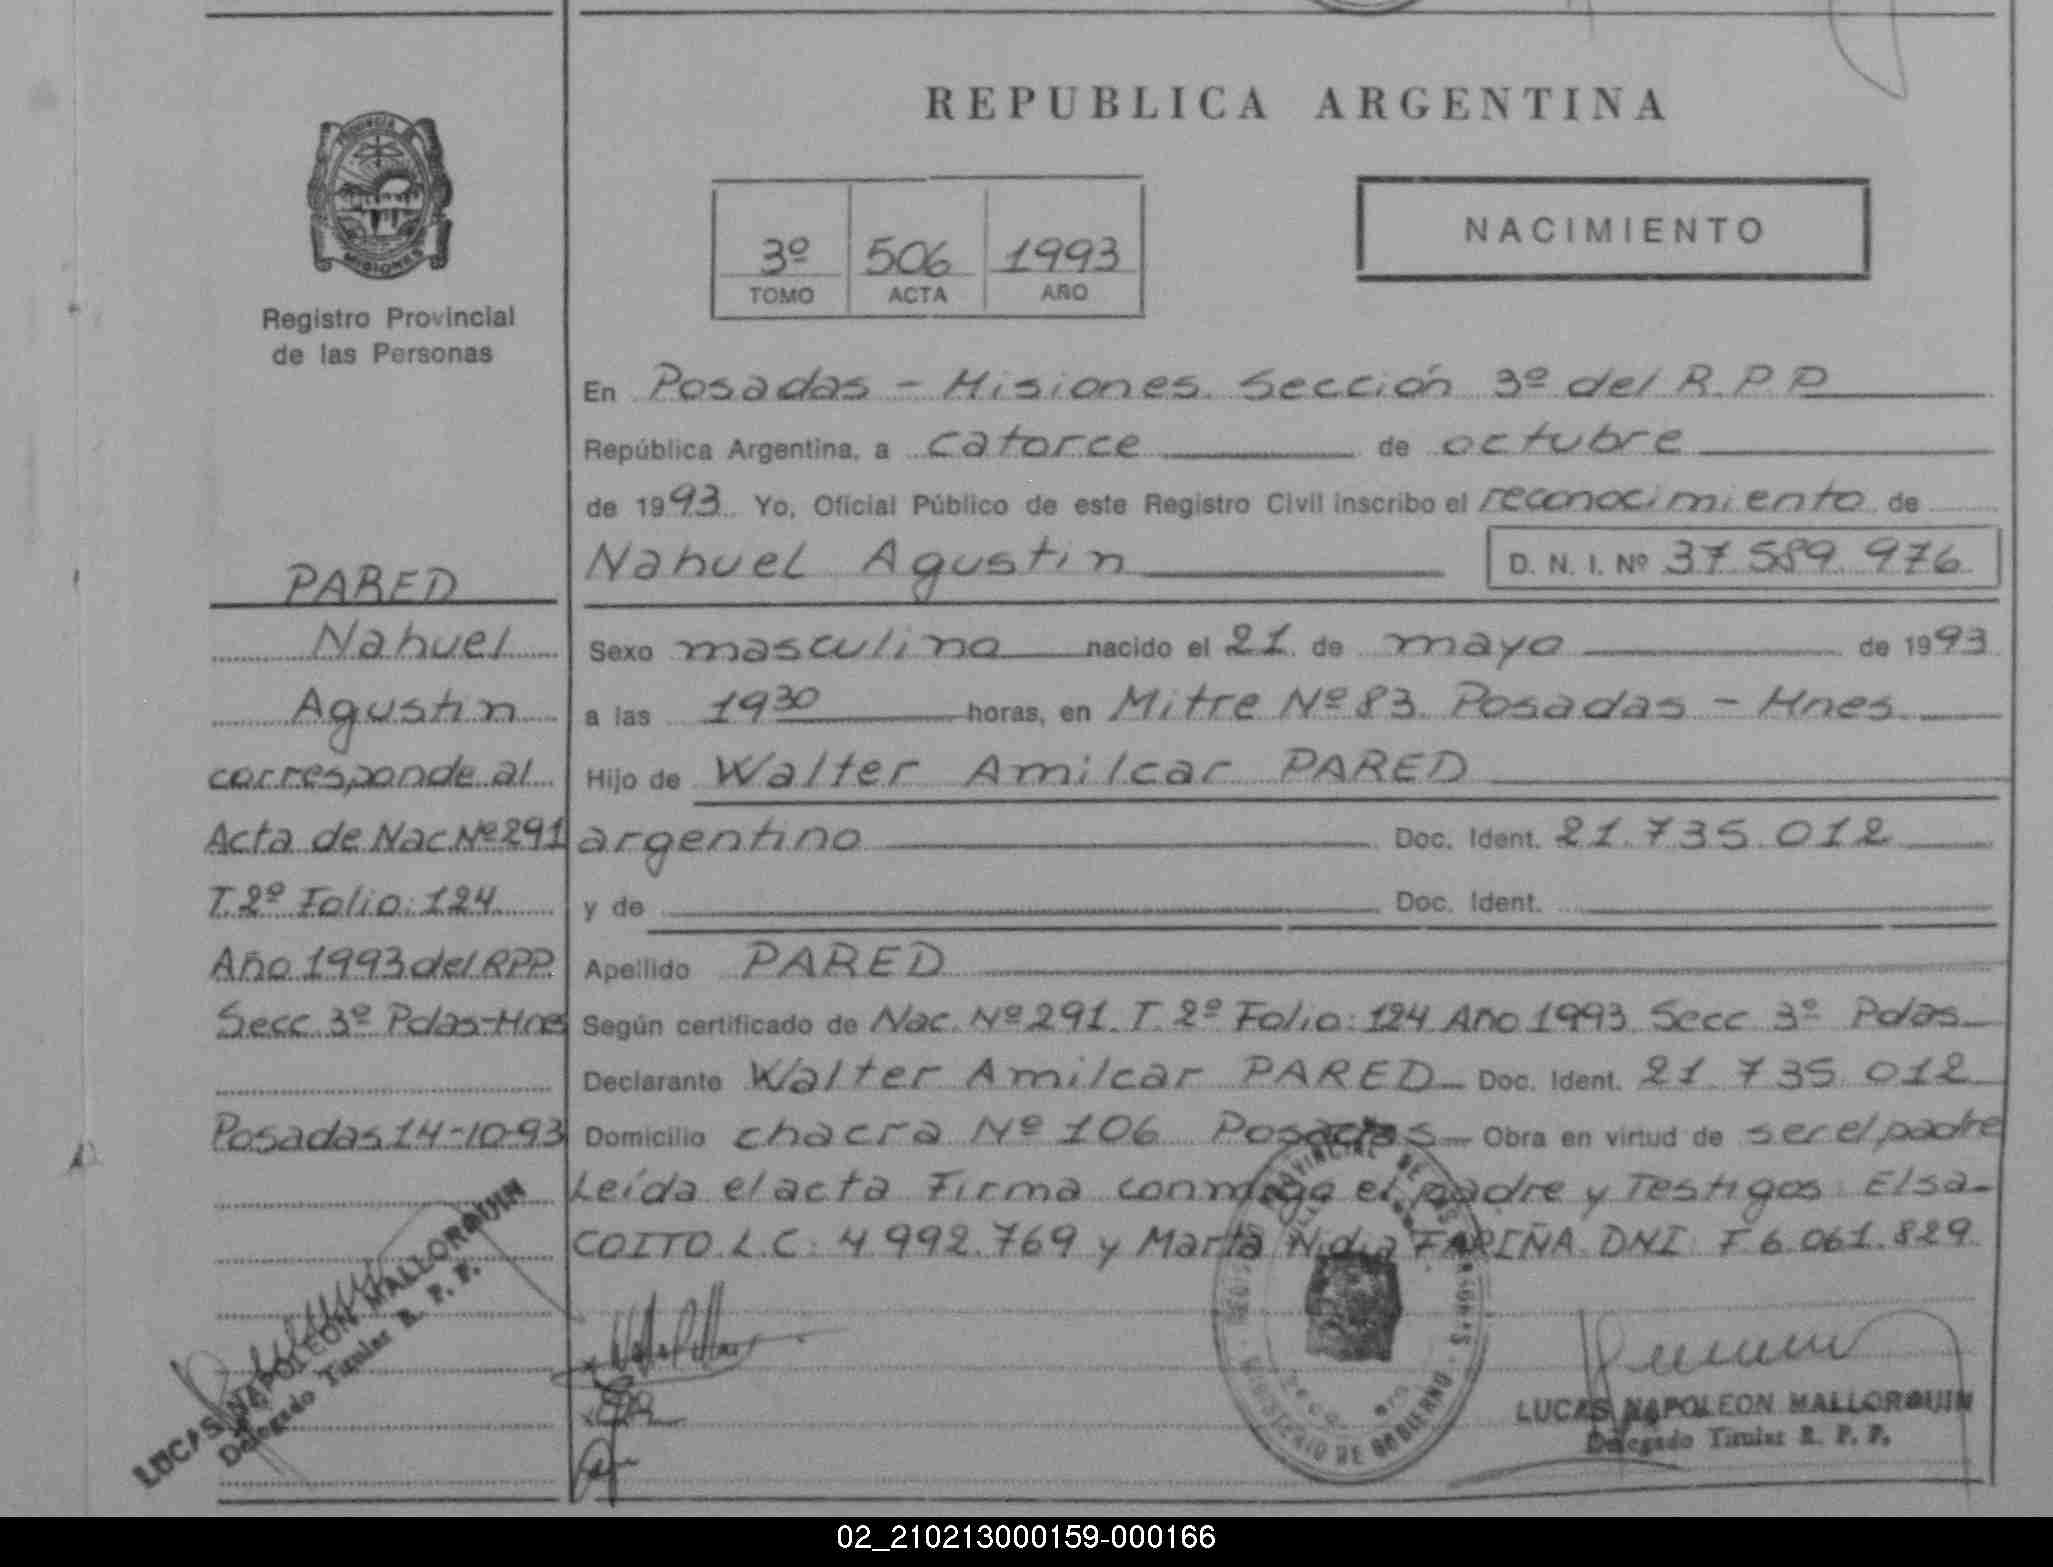 REPUBLICA ARGENTINA
PROVINCIA DE
MISIONES
Registro Provincial
de las Personas
3º 506 1993
TOMO ACTA AÑO
NACIMIENTO
PARED
Nahuel
Agustin
corresponde al
Acta de Nac Nº 291
T. 2º Folio: 124
Año 1993 del RPP
Secc 3º Pdas-Mnes
Posadas 14-10-93
LUCAS NAPOLEON MALLORQUIN
Delegado Titular R. P. P.
En Posadas - Misiones. Sección 3º del R.P.P
República Argentina, a catorce de octubre
de 1993 Yo, Oficial Público de este Registro Civil inscribo el reconocimiento de
Nahuel Agustin D. N. I. Nº 37.589.976
Sexo masculino nacido el 21 de mayo de 1993
a las 19 30 horas, en Mitre Nº 83 Posadas - Mnes
Hijo de Walter Amilcar PARED
argentino Doc. Ident. 21.735.012
y de Doc. Ident.
Apellido PARED
Según certificado de Nac. Nº 291. T. 2º Folio: 124 Año 1993 Secc 3º Pdas
Declarante Walter Amilcar PARED Doc. Ident. 21.735.012
Domicilio chacra Nº 106 Posadas Obra en virtud de ser el padre
Leída el acta Firma conmigo el padre y Testigos: Elsa
COITO L.C: 4.992.769 y Marta Nidia FARIÑA DNI: F 6.061.829
MINISTERIO DE GOBIERNO
LUCAS NAPOLEON MALLORQUIN
Delegado Titular R. P. P.
02_210213000159-000166